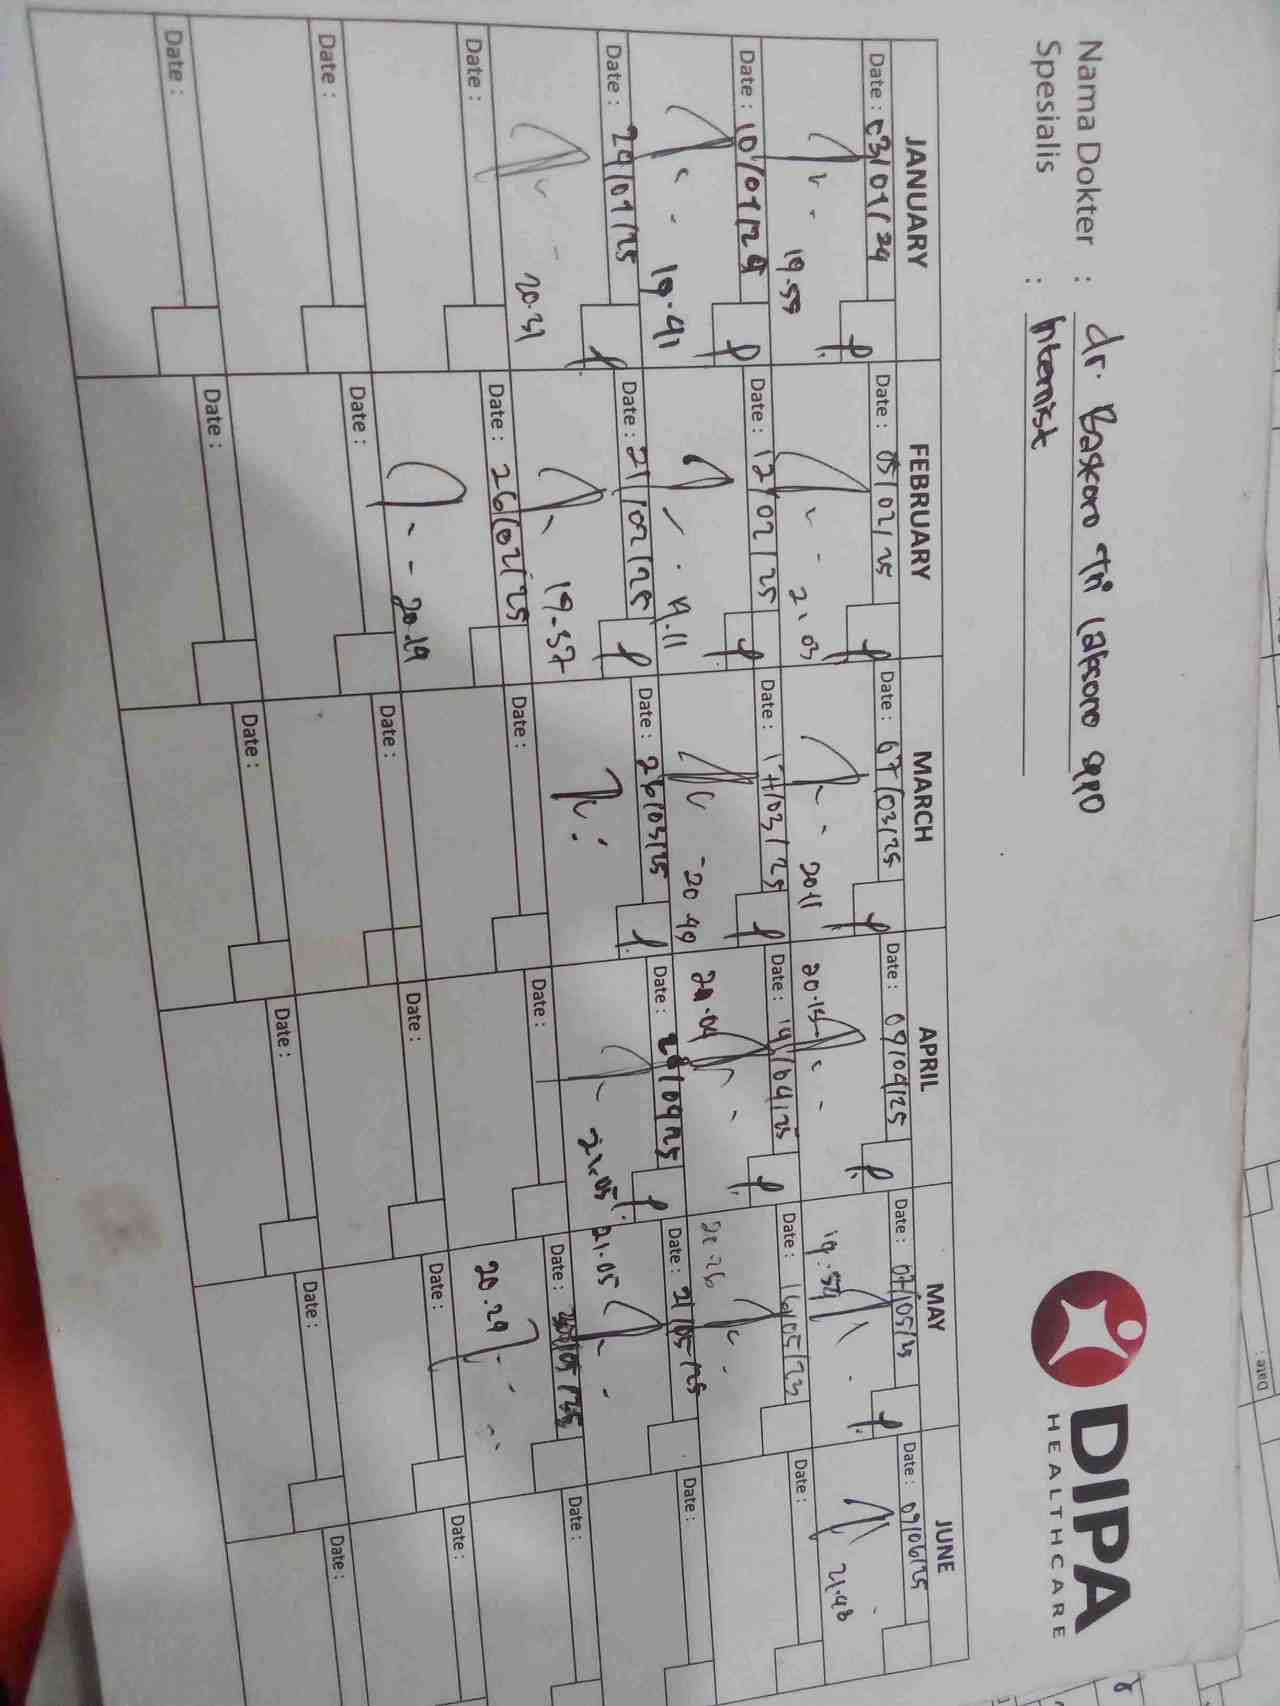 DIPA
HEALTHCARE
Nama Dokter : dr. Baskoro Tri Laksono SPPD
Spesialis : Internist
JANUARY FEBRUARY MARCH APRIL MAY JUNE
Date : 03/01/24 Date : 05/02/25 Date : 07/03/25 Date : 09/04/25 Date : 07/05/25 Date : 09/06/25
19.59 21.03 20.11 20.15 19.54 21.48
Date : 10/01/24 Date : 12/02/25 Date : 14/03/25 Date : 14/04/25 Date : 16/05/23 Date :
19.41 20.49 20.26
Date : 24/01/25 Date : 21/02/25 Date : 26/03/25 Date : Date : 21/05/25 Date :
20.31 19.37 21.05 21.05
Date : Date : 26/02/25 Date : Date : Date : Date :
20.19 20.29
Date : Date : Date : Date : Date : Date :
Date : Date : Date : Date : Date : Date :